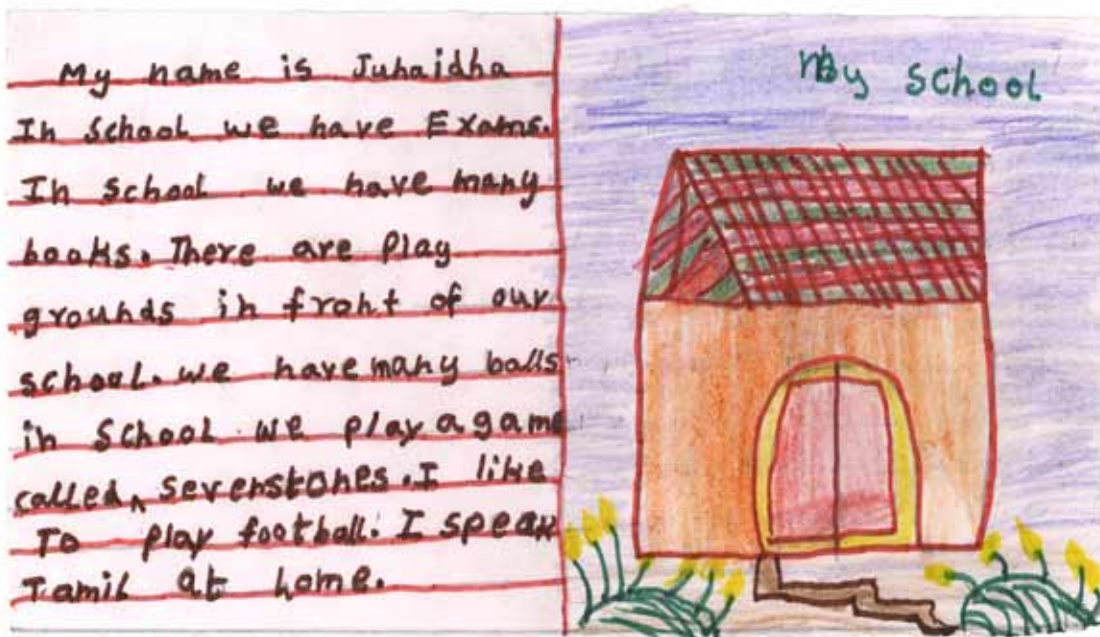 My name is Juhaidha
In school we have Exams.
In school we have many
books. There are play
grounds in front of our
school. we have many balls
in school we play a game
called, sevenstones. I like
To play football. I speak
Tamil at home.
My school